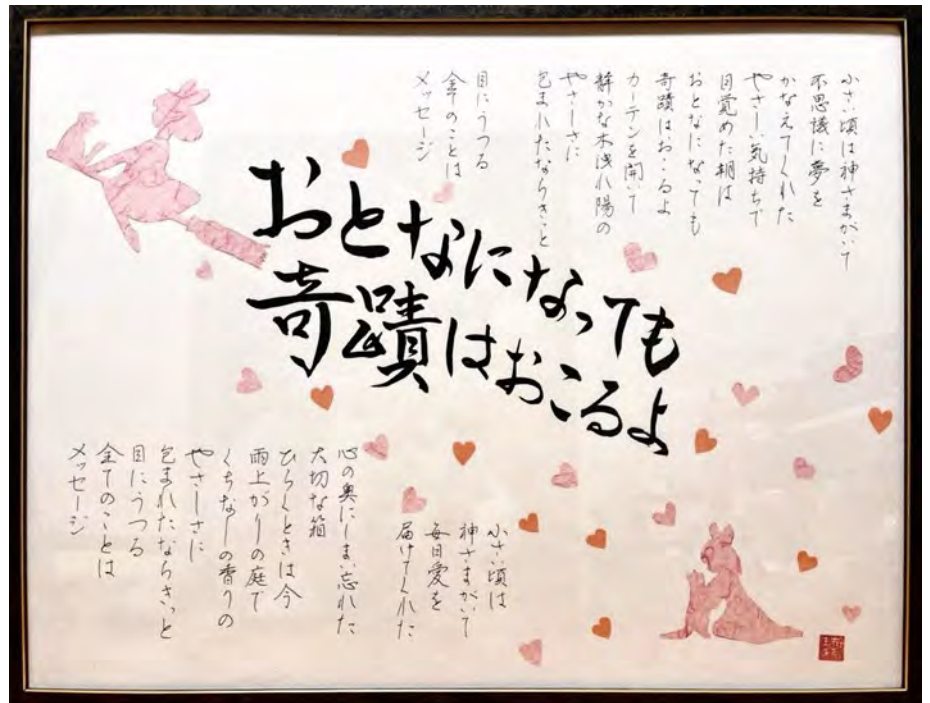 小さい頃は神さまがいて
不思議に夢を
かなえてくれた
やさしい気持ちで
目覚めた朝は
おとなになっても
奇蹟はおこるよ
カーテンを開いて
静かな木洩れ陽の
やさしさに
包まれたならきっと
目にうつる
全てのことは
メッセージ
おとなになっても
奇蹟はおこるよ
小さい頃は
神さまがいて
毎日愛を
届けてくれた
心の奥にしまい忘れた
大切な箱
ひらくときは今
雨上がりの庭で
くちなしの香りの
やさしさに
包まれたならきっと
目にうつる
全てのことは
メッセージ